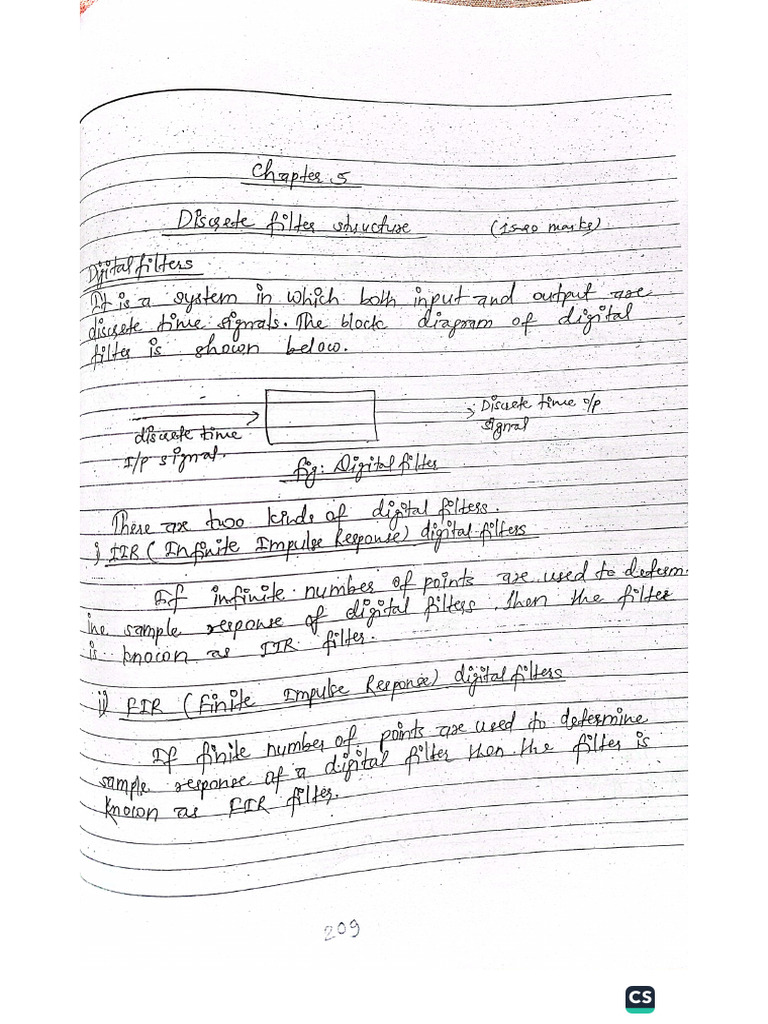 Chapter 5
Discrete filter structure (15-20 marks)
Digital filters
It is a system in which both input and output are
discrete time signals. The block diagram of digital
filter is shown below.
discrete time
I/p signal.
Discrete time o/p
signal
fig: Digital filter
There are two kinds of digital filters.
i) IIR (Infinite Impulse Response) digital filters
If infinite number of points are used to determ-
ine sample response of digital filters then the filter
is known as IIR filter.
ii) FIR (Finite Impulse Response) digital filters
If finite number of points are used to determine
sample response of a digital filter then the filter is
known as FIR filter.
209
CS